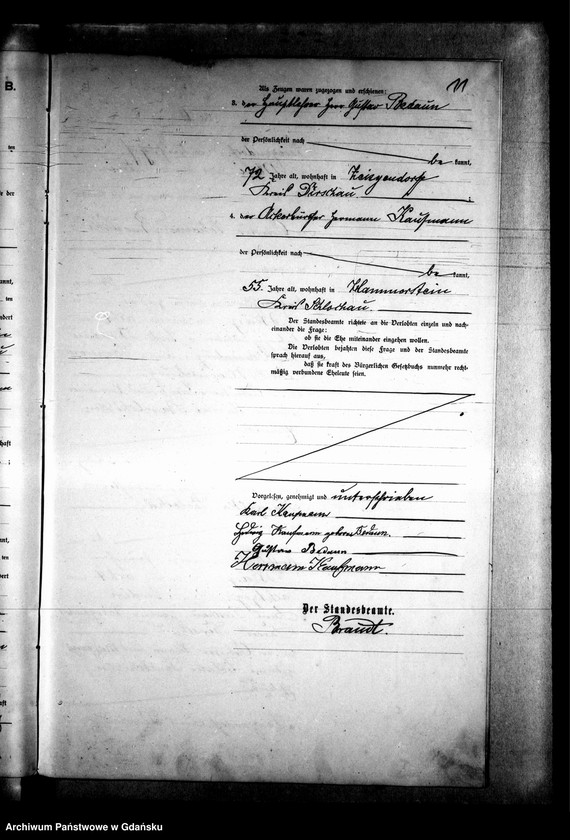 11
B.
Als Zeugen waren zugezogen und erschienen:
3. der Hauptlehrer Herr Gustav Bedaun
der Persönlichkeit nach
be kannt,
72 Jahre alt, wohnhaft in Zeisgendorf
Kreis Dirschau ;
4. der Ackerbürger Hermann Kaufmann
der Persönlichkeit nach
be kannt,
55 Jahre alt, wohnhaft in Hammerstein
Kreis Schlochau.
Der Standesbeamte richtete an die Verlobten einzeln und nach-
einander die Frage:
ob sie die Ehe miteinander eingehen wollen.
Die Verlobten bejahten diese Frage und der Standesbeamte
sprach hierauf aus,
daß sie kraft des Bürgerlichen Gesetzbuchs nunmehr recht-
mäßig verbundene Eheleute seien.
Vorgelesen, genehmigt und unterschrieben
Karl Kaufmann
Hedwig Kaufmann geborene Bedaun.
Gustav Bedaun
Hermann Kaufmann
Der Standesbeamte.
Brandt.
Archiwum Państwowe w Gdańsku